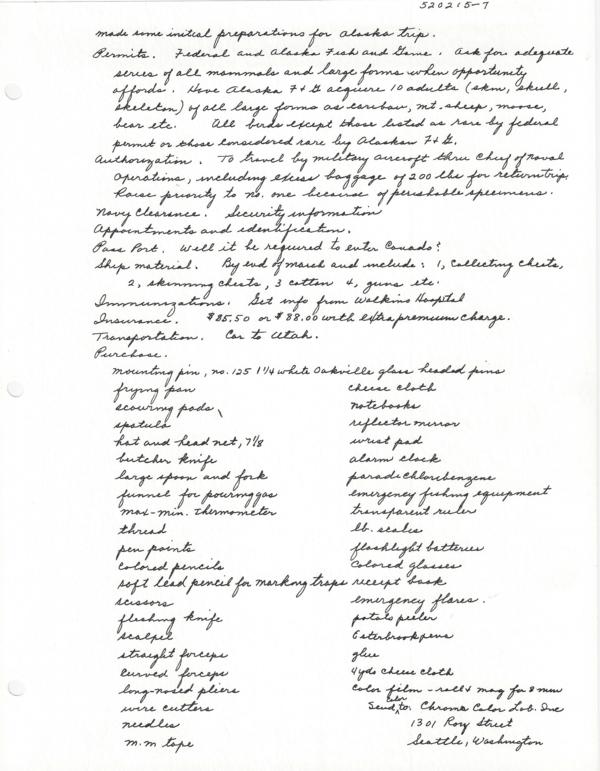 520215-7
made some initial preparations for Alaska trip.
Permits. Federal and Alaska Fish and Game. Ask for adequate
series of all mammals and large forms when opportunity
affords. Have Alaska F+G acquire 10 adults (skin, skull,
skeleton) of all large forms as caribou, mt. sheep, moose,
bear etc. All birds except those listed as rare by federal
permit or those considered rare by Alaskan F+G.
Authorization. To travel by military aircraft thru Chief of Naval
Operations, including excess baggage of 200 lbs for return trip.
Raise priority to no. one because of perishable specimens.
Navy Clearance. Security information
Appointments and identification.
Pass Port. Will it be required to enter Canada?
Ship material. By end of march and include: 1, Collecting Chests,
2, skinning chests, 3 cotton 4, guns etc.
Immunizations. Get info from Watkins Hospital
Insurance. $85.50 or $88.00 with extra premium charge.
Transportation. Car to Utah.
Purchase.
mounting pin, no. 125 1 1/4 white Oakville glass headed pins
frying pan cheese cloth
scouring pads notebooks
spatula reflector mirror
hat and head net, 7 1/8 wrist pad
butcher knife alarm clock
large spoon and fork paradichloribenzene
funnel for pouring gas emergency fishing equipment
max-min. thermometer transparent ruler
thread lb. scales
pen points flashlight batteries
colored pencils colored glasses
soft lead pencil for marking traps receipt book
scissors emergency flares.
fleshing knife potato peeler
scalpel Esterbrook pens
straight forceps glue
curved forceps 4 yds cheese cloth
long-nosed pliers color film - roll + mag for 8 mm
wire cutters Send color to: Chroma Color Lab. Inc
needles 1301 Roy Street
m.m tape Seattle, Washington